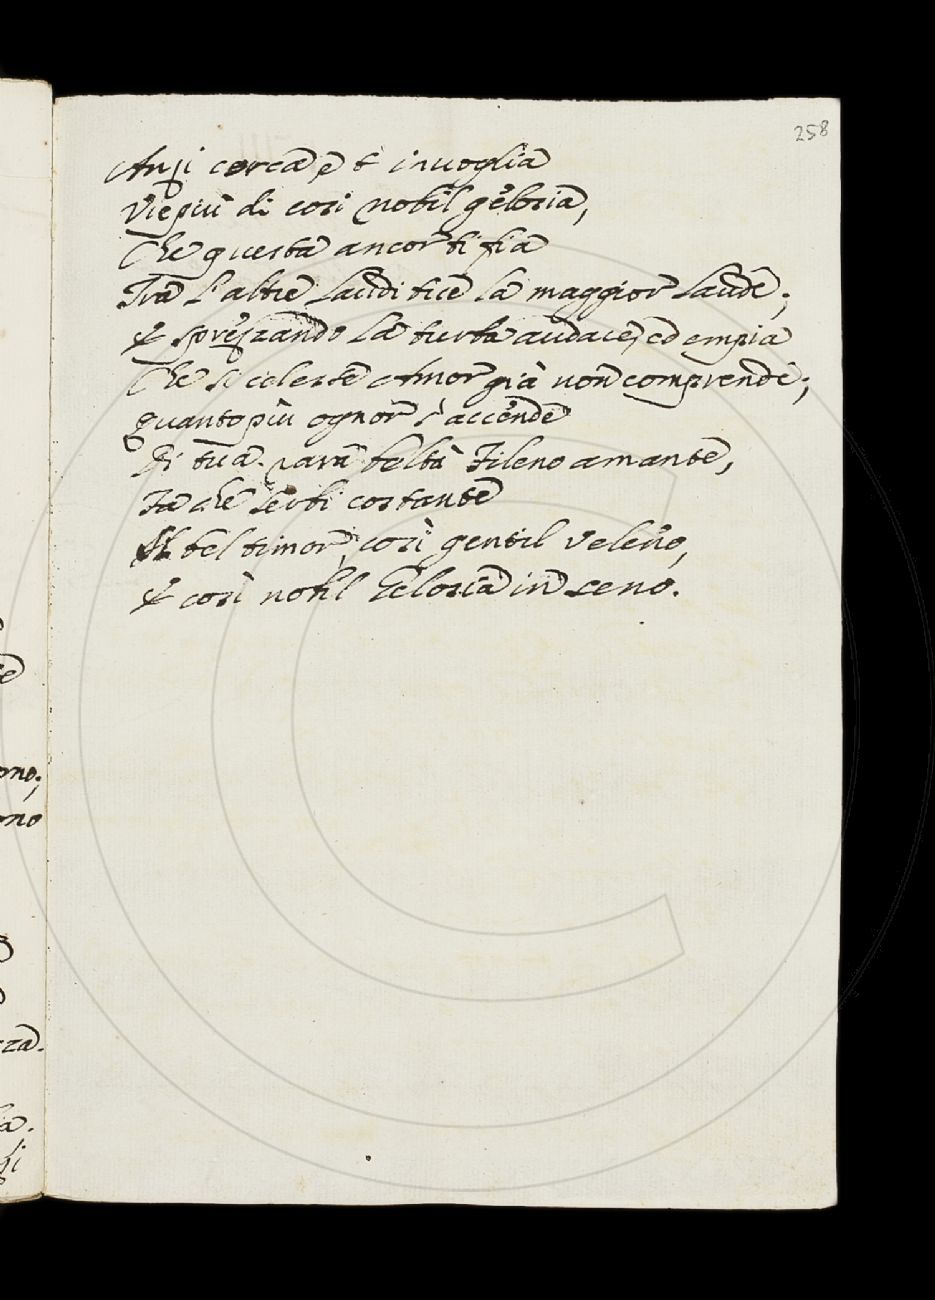 258
Anzi cerca, e t' invoglia
Viepiù di così nobil gelosia,
Che questa ancor ti fia
Tra l'altre laudi tue la maggior laude;
E sprezzando la turba audace, ed empia
Che sì celeste Amor già non comprende;
quanto più ognor s'accende
Di tua rara beltà Fileno amante,
Fa che serbi costante
Il bel timor, così gentil veleno,
E così nobil Gelosia in seno.
ono;
ono
zza.
ia.